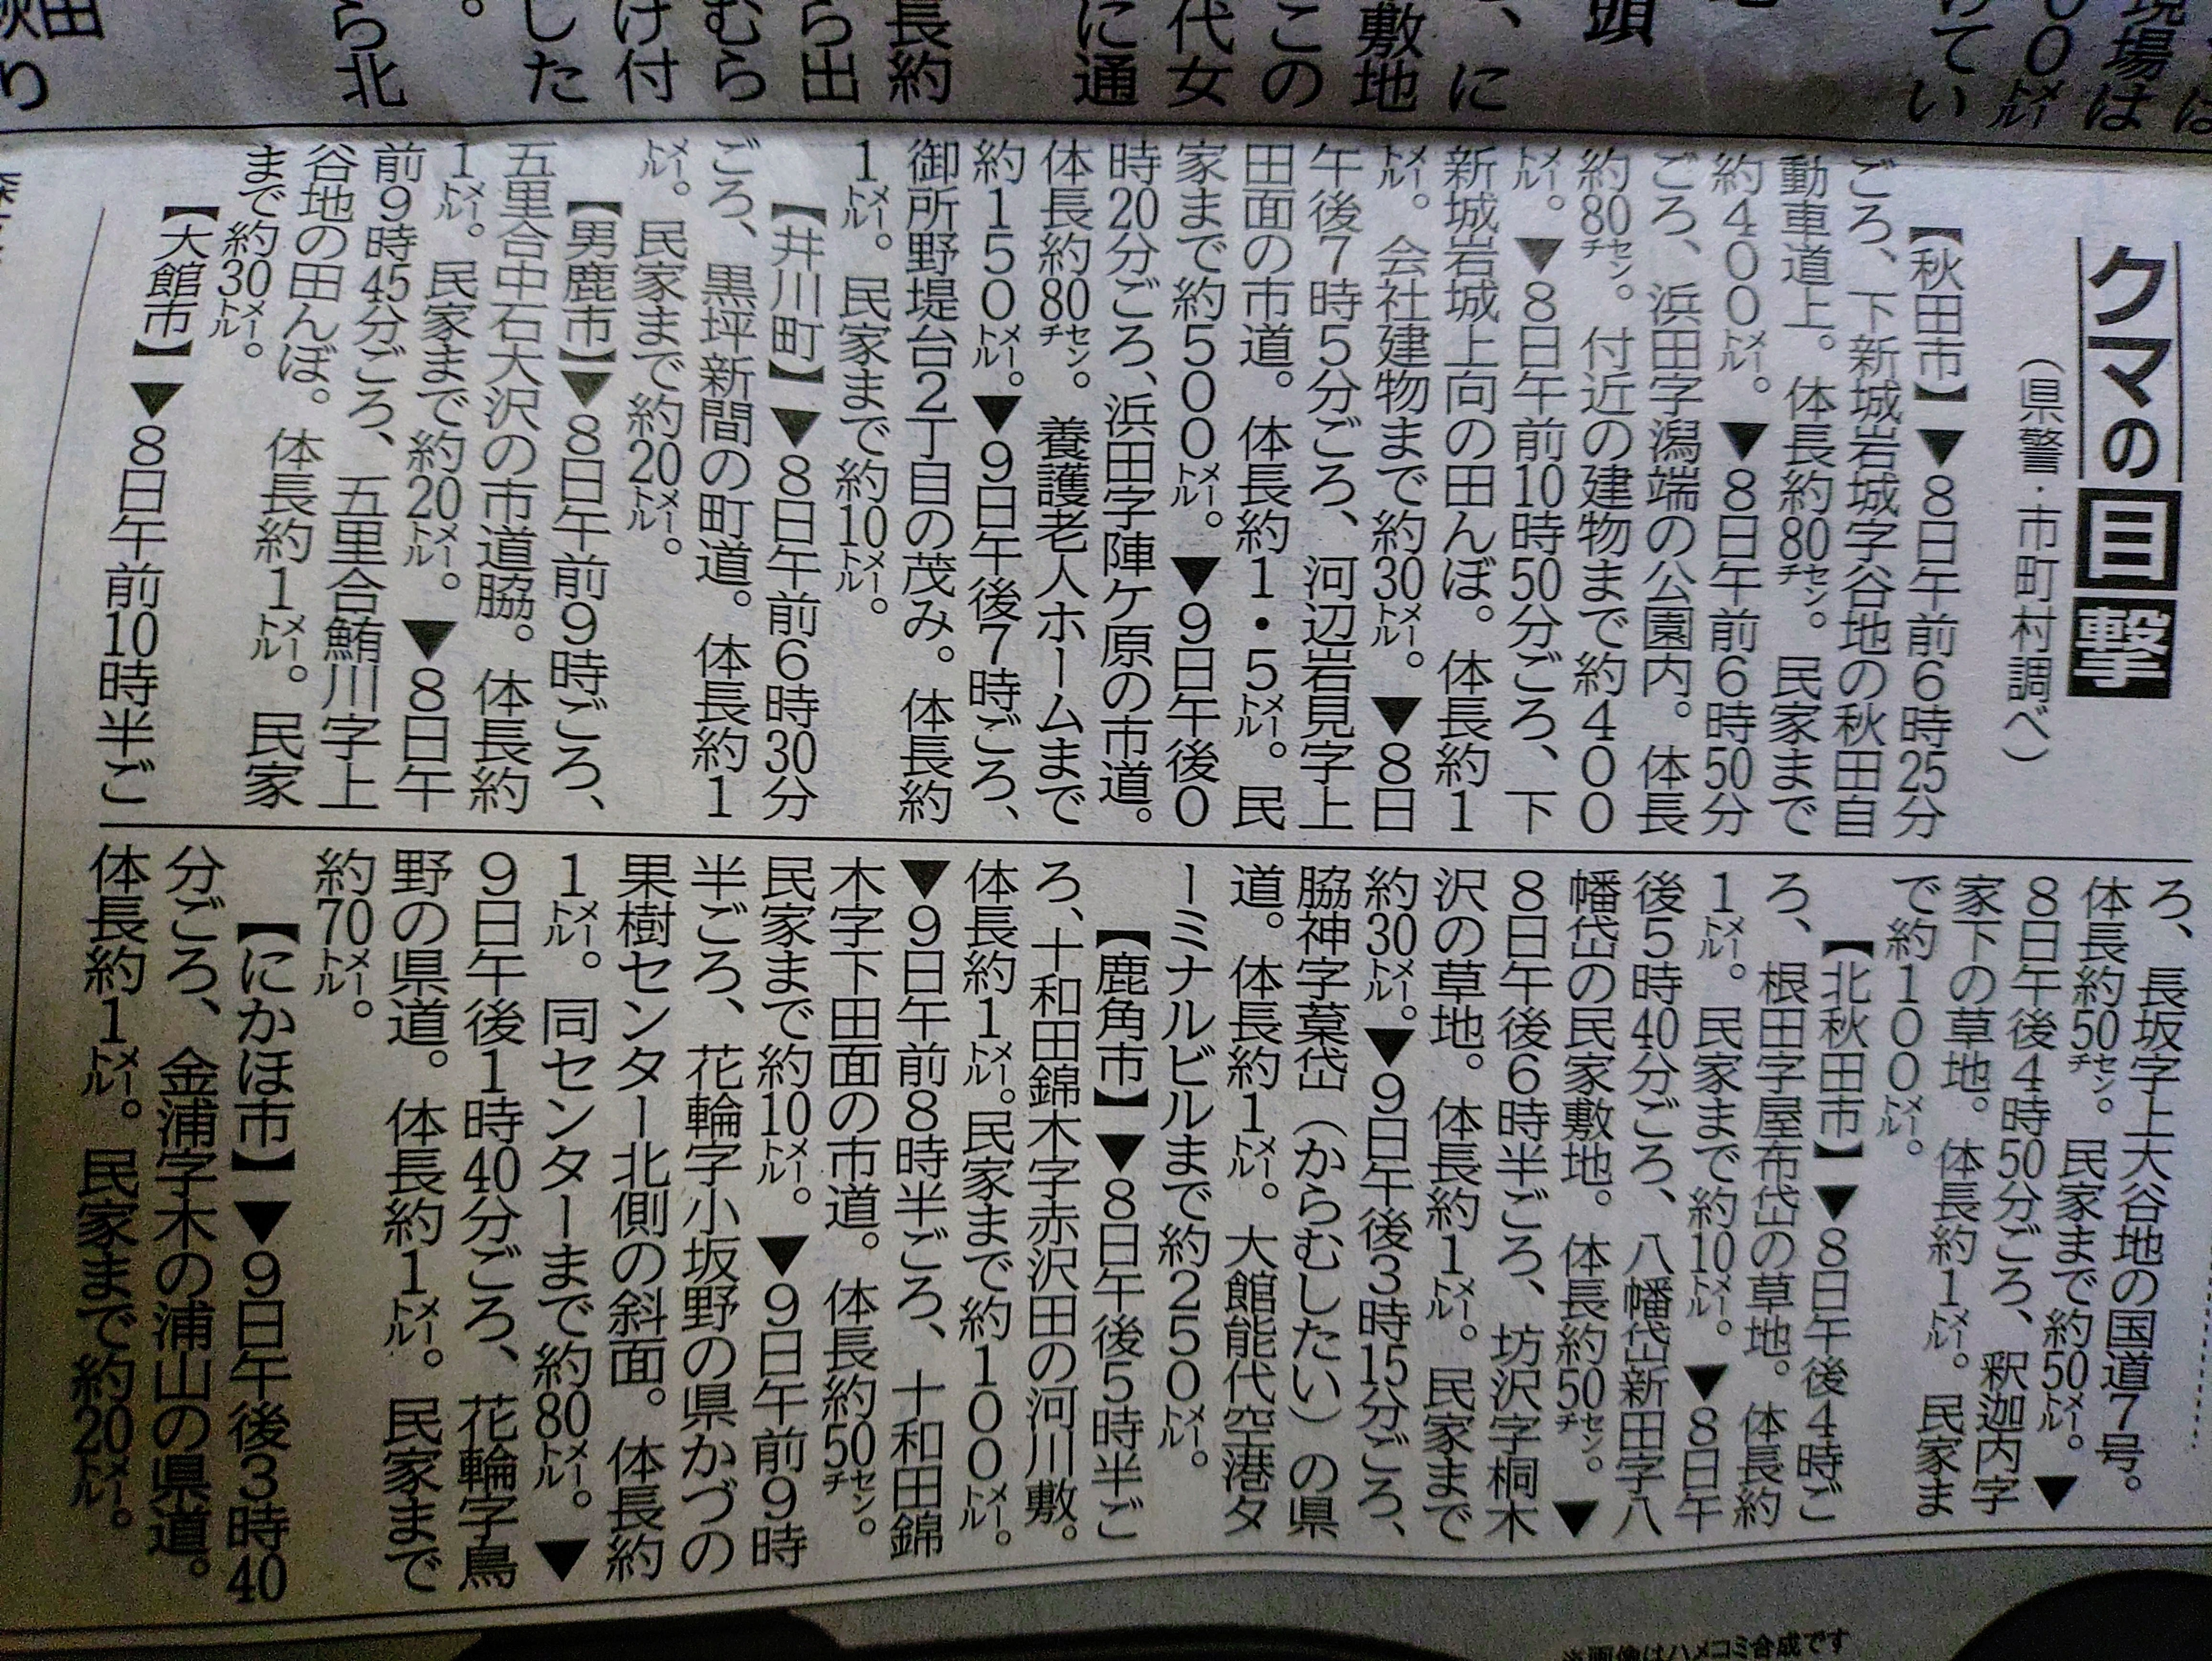 現場は
00㍍
けてい
頭
、に
敷地
この
代女
に通
長約
ら出
むら
け付
した
。
ら北
秋田
り
クマの目撃
(県警・市町村調べ)
【秋田市】▼8日午前6時25分
ごろ、下新城岩城字谷地の秋田自
動車道上。体長約80㌢。民家まで
約400㍍。▼8日午前6時50分
ごろ、浜田字潟端の公園内。体長
約80㌢。付近の建物まで約400
㍍。▼8日午前10時50分ごろ、下
新城岩城上向の田んぼ。体長約1
㍍。会社建物まで約30㍍。▼8日
午後7時5分ごろ、河辺岩見字上
田面の市道。体長約1・5㍍。民
家まで約500㍍。▼9日午後0
時20分ごろ、浜田字陣ケ原の市道。
体長約80㌢。養護老人ホームまで
約150㍍。▼9日午後7時ごろ、
御所野堤台2丁目の茂み。体長約
1㍍。民家まで約10㍍。
【井川町】▼8日午前6時30分
ごろ、黒坪新間の町道。体長約1
㍍。民家まで約20㍍。
【男鹿市】▼8日午前9時ごろ、
五里合中石大沢の市道脇。体長約
1㍍。民家まで約20㍍。▼8日午
前9時45分ごろ、五里合鮪川字上
谷地の田んぼ。体長約1㍍。民家
まで約30㍍。
【大館市】▼8日午前10時半ご
ろ、長坂字上大谷地の国道7号。
体長約50㌢。民家まで約50㍍。▼
8日午後4時50分ごろ、釈迦内字
家下の草地。体長約1㍍。民家ま
で約100㍍。
【北秋田市】▼8日午後4時ご
ろ、根田字屋布岱の草地。体長約
1㍍。民家まで約10㍍。▼8日午
後5時40分ごろ、八幡岱新田字八
幡岱の民家敷地。体長約50㌢。▼
8日午後6時半ごろ、坊沢字桐木
沢の草地。体長約1㍍。民家まで
約30㍍。▼9日午後3時15分ごろ、
脇神字藁岱(からむしたい)の県
道。体長約1㍍。大館能代空港タ
ーミナルビルまで約250㍍。
【鹿角市】▼8日午後5時半ご
ろ、十和田錦木字赤沢田の河川敷。
体長約1㍍。民家まで約100㍍。
▼9日午前8時半ごろ、十和田錦
木字下田面の市道。体長約50㌢。
民家まで約10㍍。▼9日午前9時
半ごろ、花輪字小坂野の県かづの
果樹センター北側の斜面。体長約
1㍍。同センターまで約80㍍。▼
9日午後1時40分ごろ、花輪字鳥
野の県道。体長約1㍍。民家まで
約70㍍。
【にかほ市】▼9日午後3時40
分ごろ、金浦字木の浦山の県道。
体長約1㍍。民家まで約20㍍。
※画像はハメコミ合成です